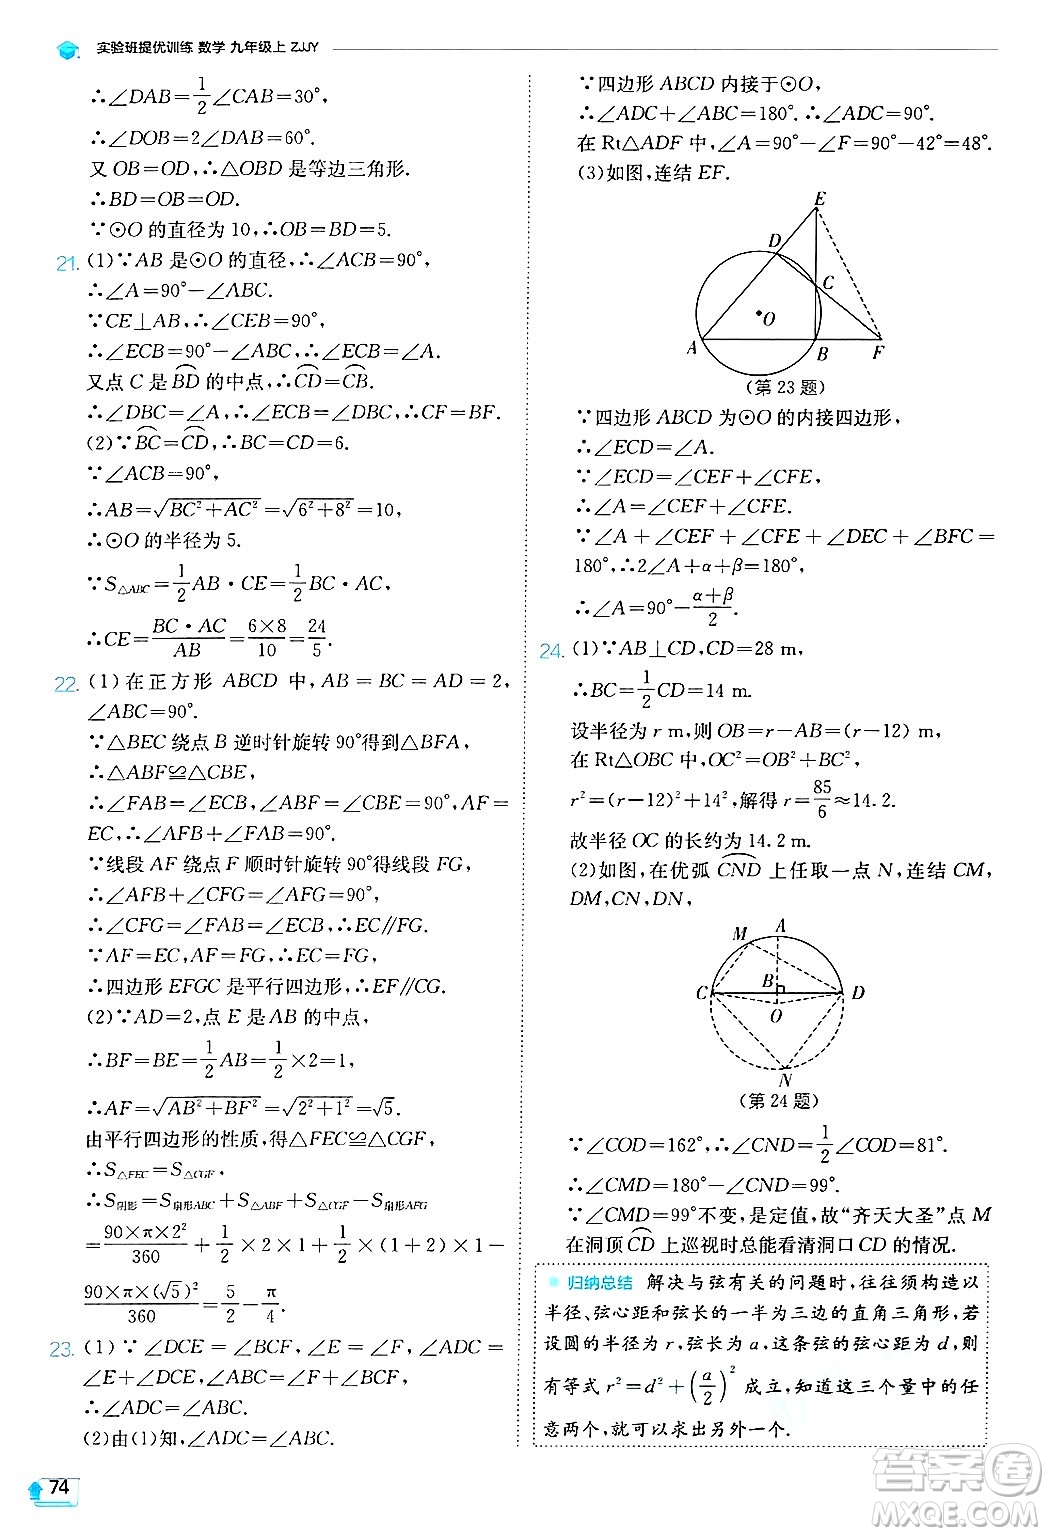 实验班提优训练 数学 九年级上 ZJJY
∴∠DAB=1/2∠CAB=30°,
∴∠DOB=2∠DAB=60°.
又 OB=OD,∴△OBD 是等边三角形.
∴BD=OB=OD.
∵⊙O 的直径为 10,∴OB=BD=5.
21. (1)∵AB 是⊙O 的直径,∴∠ACB=90°,
∴∠A=90°-∠ABC.
∵CE⊥AB,∴∠CEB=90°,
∴∠ECB=90°-∠ABC,∴∠ECB=∠A.
又点 C 是 BD⌒ 的中点,∴CD⌒=CB⌒.
∴∠DBC=∠A,∴∠ECB=∠DBC,∴CF=BF.
(2)∵BC⌒=CD⌒,∴BC=CD=6.
∵∠ACB=90°,
∴AB=√(BC²+AC²)=√(6²+8²)=10,
∴⊙O 的半径为 5.
∵S△ABC=1/2AB·CE=1/2BC·AC,
∴CE=BC·AC/AB=6×8/10=24/5.
22. (1)在正方形 ABCD 中,AB=BC=AD=2,
∠ABC=90°.
∵△BEC 绕点 B 逆时针旋转 90°得到△BFA,
∴△ABF≌△CBE,
∴∠FAB=∠ECB,∠ABF=∠CBE=90°,AF=
EC,∴∠AFB+∠FAB=90°.
∵线段 AF 绕点 F 顺时针旋转 90°得线段 FG,
∴∠AFB+∠CFG=∠AFG=90°,
∴∠CFG=∠FAB=∠ECB,∴EC∥FG.
∵AF=EC,AF=FG,∴EC=FG,
∴四边形 EFGC 是平行四边形,∴EF∥CG.
(2)∵AD=2,点 E 是 AB 的中点,
∴BF=BE=1/2AB=1/2×2=1,
∴AF=√(AB²+BF²)=√(2²+1²)=√5.
由平行四边形的性质,得△FEC≌△CGF,
∴S△FEC=S△CGF,
∴S阴影=S扇形ABC+S△ABF+S△CGF-S扇形AFG
=90×π×2²/360+1/2×2×1+1/2×(1+2)×1-
90×π×(√5)²/360=5/2-π/4.
23. (1)∵∠DCE=∠BCF,∠E=∠F,∠ADC=
∠E+∠DCE,∠ABC=∠F+∠BCF,
∴∠ADC=∠ABC.
(2)由(1)知,∠ADC=∠ABC.
74
∵四边形 ABCD 内接于⊙O,
∴∠ADC+∠ABC=180°.∴∠ADC=90°.
在 Rt△ADF 中,∠A=90°-∠F=90°-42°=48°.
(3)如图,连结 EF.
E
D
C
O
A
B
F
(第 23 题)
∵四边形 ABCD 为⊙O 的内接四边形,
∴∠ECD=∠A.
∵∠ECD=∠CEF+∠CFE,
∴∠A=∠CEF+∠CFE.
∵∠A+∠CEF+∠CFE+∠DEC+∠BFC=
180°,∴2∠A+α+β=180°,
∴∠A=90°-(α+β)/2.
24. (1)∵AB⊥CD,CD=28 m,
∴BC=1/2CD=14 m.
设半径为 r m,则 OB=r-AB=(r-12)m,
在 Rt△OBC 中,OC²=OB²+BC²,
r²=(r-12)²+14²,解得 r=85/6≈14.2.
故半径 OC 的长约为 14.2 m.
(2)如图,在优弧 CND⌒ 上任取一点 N,连结 CM,
DM,CN,DN,
A
M
B
C
D
O
N
(第 24 题)
∵∠COD=162°,∴∠CND=1/2∠COD=81°.
∴∠CMD=180°-∠CND=99°.
∵∠CMD=99°不变,是定值,故“齐天大圣”点 M
在洞顶 CD⌒ 上巡视时总能看清洞口 CD 的情况.
归纳总结 解决与弦有关的问题时,往往须构造以
半径、弦心距和弦长的一半为三边的直角三角形,若
设圆的半径为 r,弦长为 a,这条弦的弦心距为 d,则
有等式 r²=d²+(a/2)² 成立,知道这三个量中的任
意两个,就可以求出另外一个.
答案卷
MXQE.COM